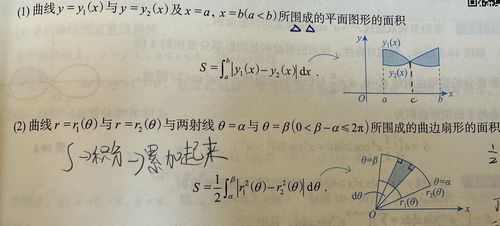 (1) 曲线y=y₁(x)与y=y₂(x)及x=a, x=b(a<b)所围成的平面图形的面积
S=∫ₐᵇ|y₁(x)-y₂(x)|dx.
y
y₁(x)
y₂(x)
O a c b x
(2) 曲线r=r₁(θ)与r=r₂(θ)与两射线θ=α与θ=β(0<β-α≤2π)所围成的曲边扇形的面积
S→积分→累加起来
1/2
S=1/2∫_α^β|r₁²(θ)-r₂²(θ)|dθ.
θ=β
θ=α
dθ
r₂(θ)
r₁(θ)
O x